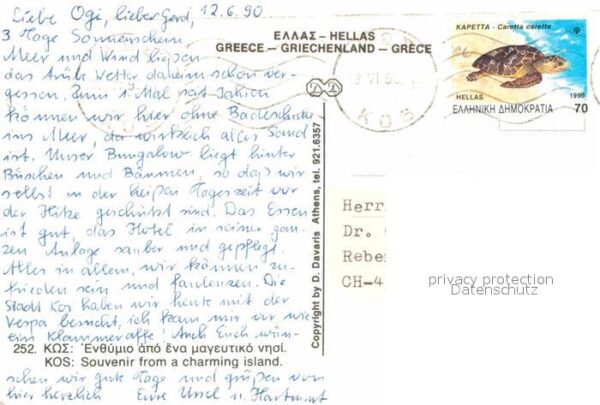 Liebe Ogi, lieber Gerd, 12.6.90
3 Tage Sonnenschein
Meer und Wind ließen
das trübe Wetter daheim schon ver-
gessen. Zum 1. Mal seit Jahren
können wir hier ohne Badeschuhe
ins Meer, da wirklich alles Sand
ist. Unser Bungalow liegt hinter
Büschen und Bäumen, so daß wir
selbst in der heißen Tageszeit vor
der Hitze geschützt sind. Das Essen
ist gut, das Hotel in seiner gan-
zen Anlage sauber und gepflegt.
Alles in allem, wir können zu-
frieden sein und faulenzen. Die
Stadt Kos haben wir heute mit der
Vespa besucht, ich kam mir vor wie
ein Klammeraffe! Auch Euch wün-
252. ΚΩΣ: Ἐνθύμιο ἀπό ἕνα μαγευτικό νησί.
KOS: Souvenir from a charming island.
schen wir gute Tage und grüßen von
hier herzlich Eure Ursel u. Hartmut
ΕΛΛΑΣ – HELLAS
GREECE – GRIECHENLAND – GRÈCE
Copyright by D. Davaris Athens, tel. 921.6357
12 VI 90
KOS
ΚΑΡΕΤΤΑ - Caretta caretta
HELLAS 1990
ΕΛΛΗΝΙΚΗ ΔΗΜΟΚΡΑΤΙΑ 70
Herr
Dr.
Rebe
CH-4
privacy protection
Datenschutz